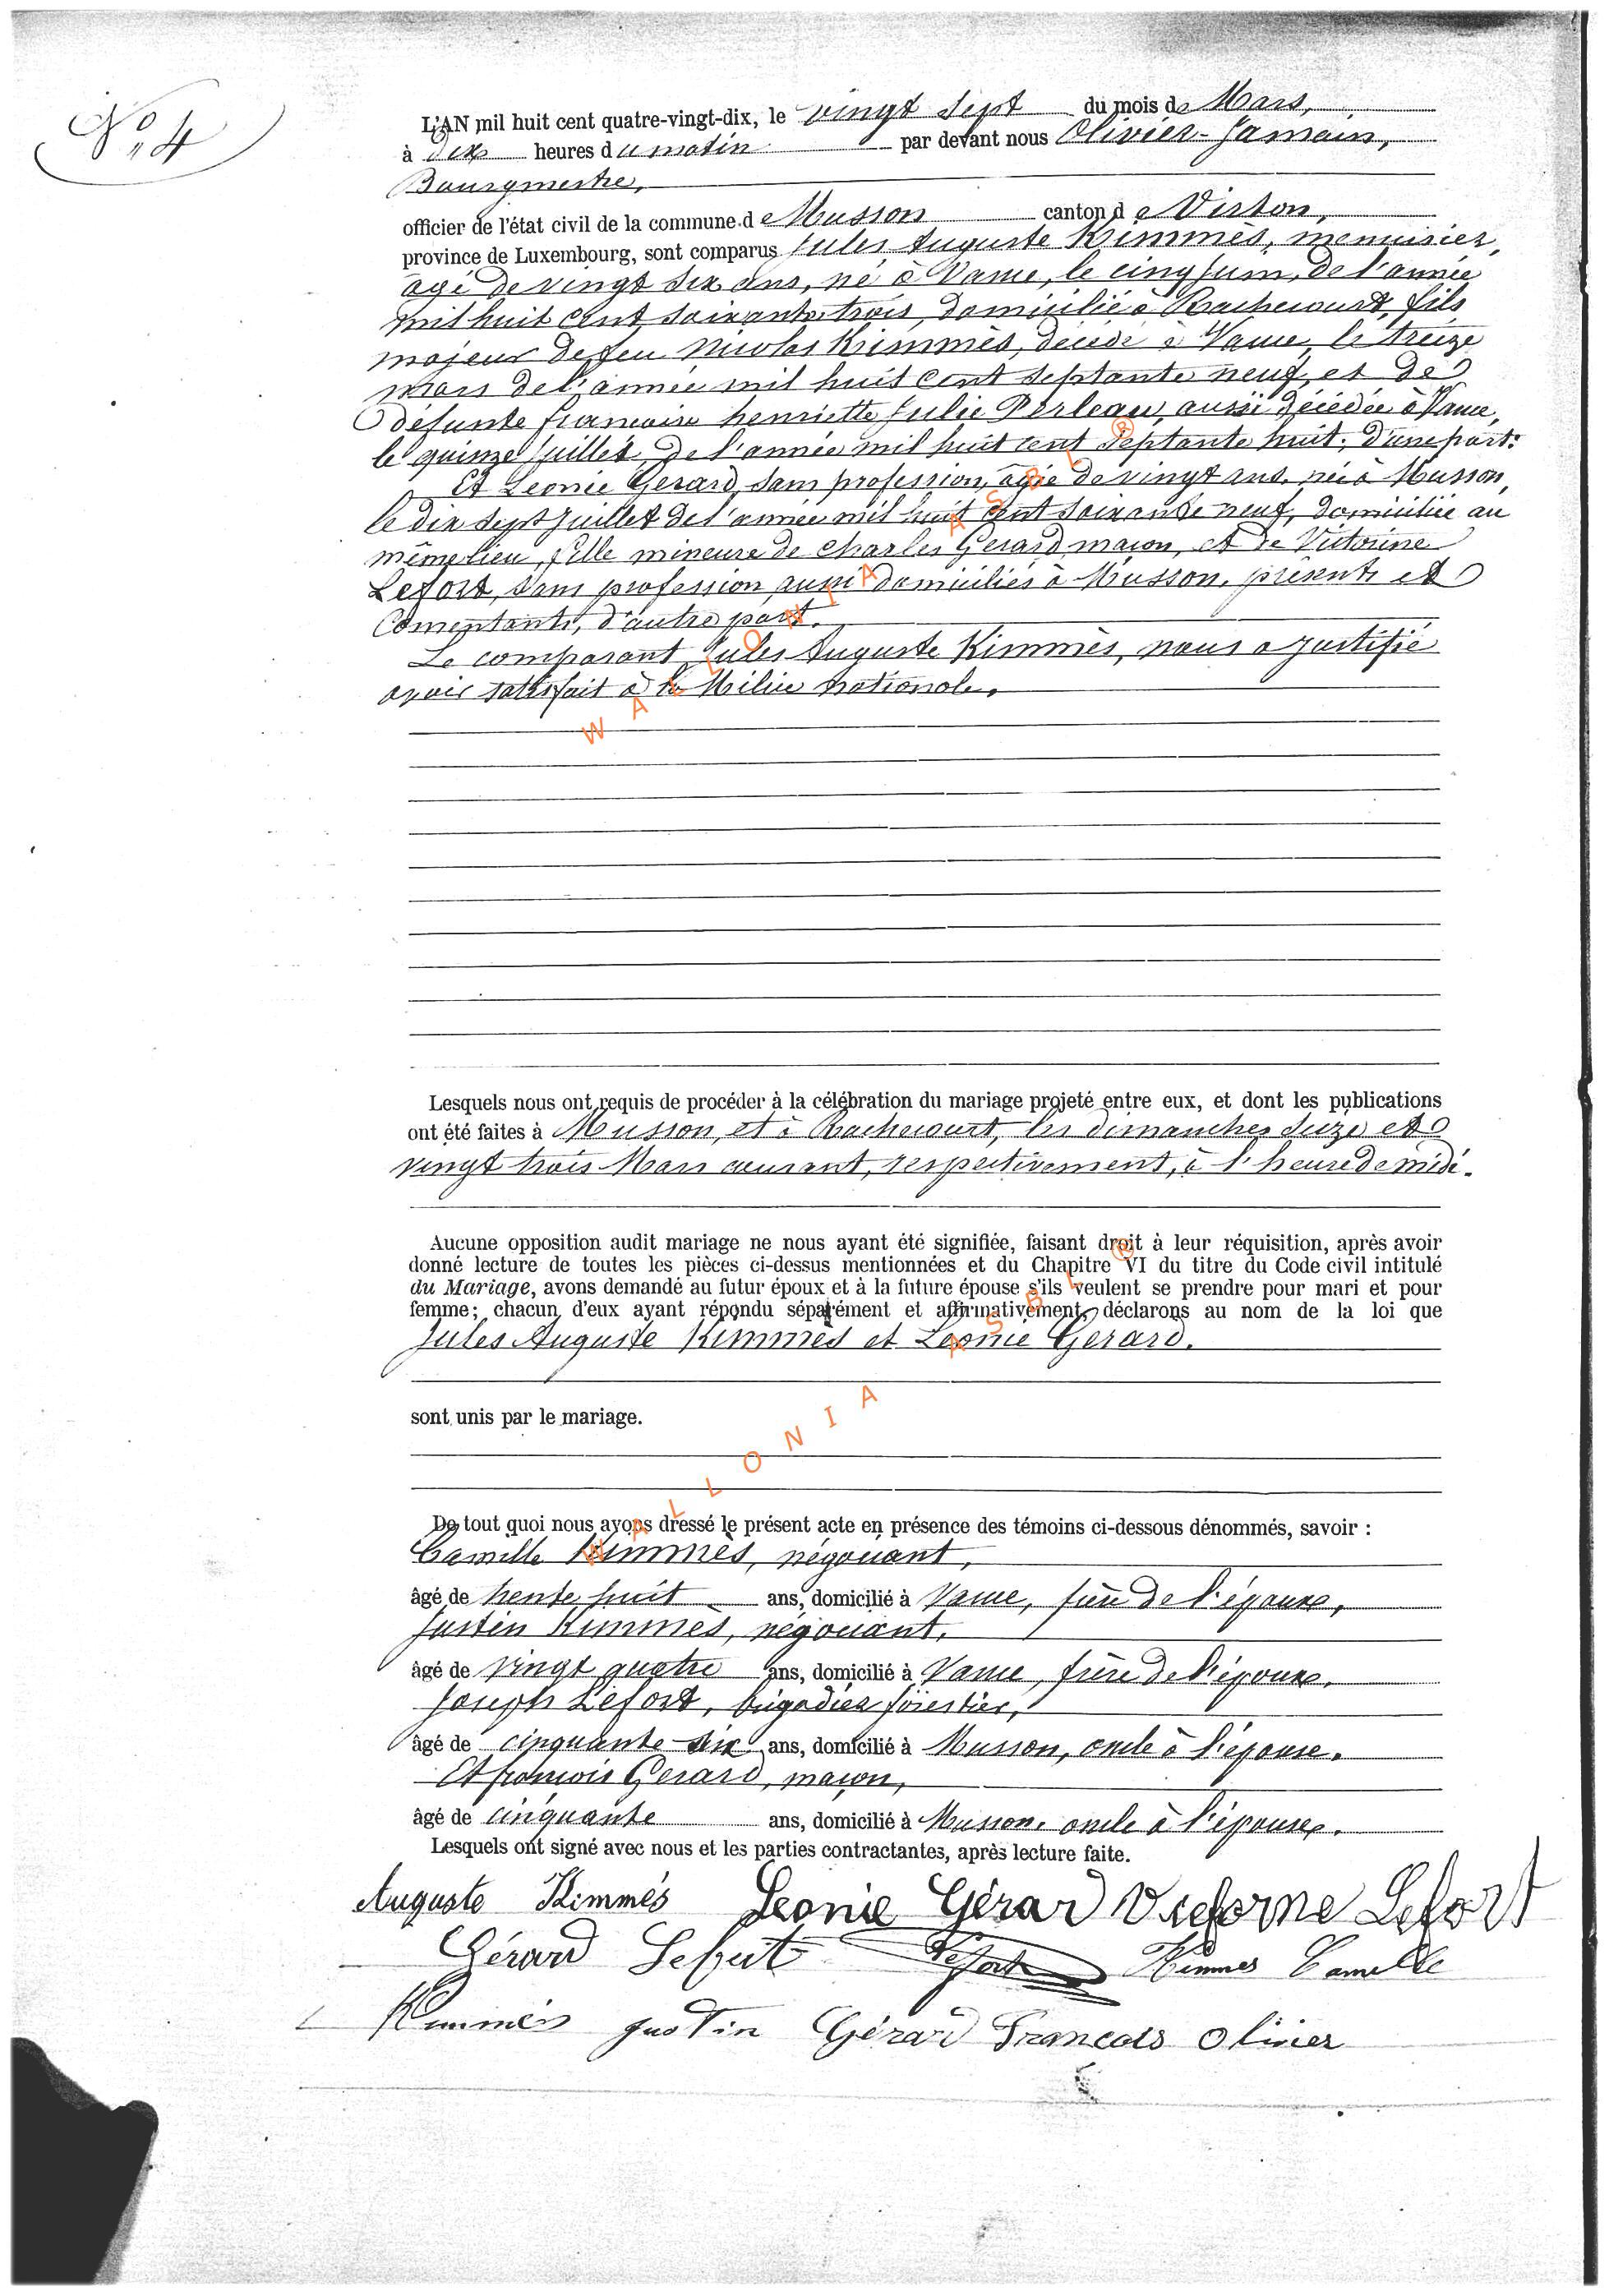 N° 4
L'AN mil huit cent quatre-vingt-dix, le vingt sept du mois de Mars,
à dix heures du matin par devant nous Olivier-Jamain,
Bourgmestre,
officier de l'état civil de la commune de Musson canton de Virton,
province de Luxembourg, sont comparus Jules Auguste Kimmès, menuisier,
âgé de vingt six ans, né à Vance, le cinq Juin, de l'année
mil huit cent soixante trois, domicilié à Rachecourt, fils
majeur de feu Nicolas Kimmès, décédé à Vance, le treize
mars de l'année mil huit cent septante neuf, et de
défunte françoise henriette Julie Perleau, aussi décédée à Vance,
le quinze Juillet de l'année mil huit cent septante huit, d'une part:
Et Léonie Gerard, sans profession, âgée de vingt ans, née à Musson,
le dix sept Juillet de l'année mil huit cent soixante neuf, domiciliée au
même lieu, fille mineure de Charles Gerard maçon, et de Victorine
Lefort, sans profession, aussi domiciliés à Musson, présents et
Consentants, d'autre part.
Le comparant Jules Auguste Kimmès, nous a justifié
avoir satisfait à la Milice nationale.
Lesquels nous ont requis de procéder à la célébration du mariage projeté entre eux, et dont les publications
ont été faites à Musson, et à Rachecourt, les dimanches seize et
vingt trois Mars courant, respectivement, à l'heure de midi.
Aucune opposition audit mariage ne nous ayant été signifiée, faisant droit à leur réquisition, après avoir
donné lecture de toutes les pièces ci-dessus mentionnées et du Chapitre VI du titre du Code civil intitulé
du Mariage, avons demandé au futur époux et à la future épouse s'ils veulent se prendre pour mari et pour
femme; chacun d'eux ayant répondu séparément et affirmativement, déclarons au nom de la loi que
Jules Auguste Kimmès et Léonie Gerard.
sont unis par le mariage.
De tout quoi nous avons dressé le présent acte en présence des témoins ci-dessous dénommés, savoir :
Camille Kimmès, négociant,
âgé de trente huit ans, domicilié à Vance, frère de l'époux,
Justin Kimmès, négociant,
âgé de vingt quatre ans, domicilié à Vance, frère de l'époux,
Joseph Lefort, brigadier forestier,
âgé de cinquante six ans, domicilié à Musson, oncle à l'épouse.
Et françois Gerard, maçon,
âgé de cinquante ans, domicilié à Musson, oncle à l'épouse.
Lesquels ont signé avec nous et les parties contractantes, après lecture faite.
Auguste Kimmés Leonie Gérard Victorine Lefort
Gérard Lefort Lefort Kimmes Camille
Kimmès Justin Gérard Francois Olivier
WALLONIA ASBL ®
WALLONIA ASBL ®